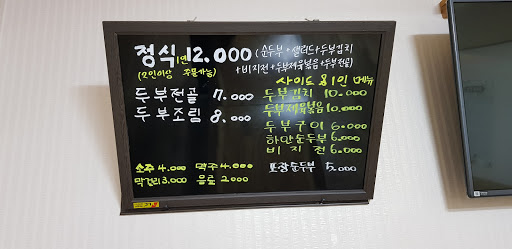 정식 1인 12.000 (순두부+샐러드+두부김치
(2인이상 주문가능) +비지전+두부제육볶음+두부전골)
사이드 & 1인 메뉴
두부전골 7.000 두부김치 10.000
두부조림 8.000 두부제육볶음 10.000
두부구이 6.000
하얀순두부 6.000
비지전 6.000
소주 4.000 맥주 4.000 포장순두부 5.000
막걸리 3.000 음료 2000